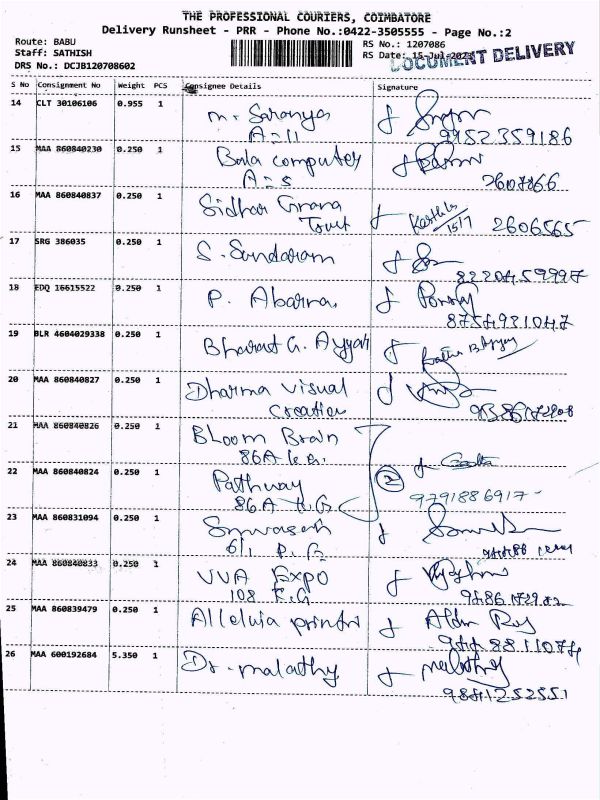 THE PROFESSIONAL COURIERS, COIMBATORE
Delivery Runsheet - PRR - Phone No.:0422-3505555 - Page No.:2
Route: BABU
Staff: SATHISH
DRS No.: DCJB120708602
RS No.: 1207086
RS Date: 15-Jul-2023
DOCUMENT DELIVERY
S No Consignment No Weight PCS Consignee Details Signature
14 CLT 30106106 0.955 1 M. Saranya
A-11 9952359186
15 MAA 860840230 0.250 1 Bala computer
A-5 2607866
16 MAA 860840837 0.250 1 Sidhar Gnana
Trust Karthik 15/7 2606565
17 SRG 386035 0.250 1 S. Sundaram
8220459997
18 EDQ 16615522 0.250 1 P. Abarna
8754931047
19 BLR 4604029338 0.250 1 Bharat G. Ayyar
20 MAA 860840827 0.250 1 Dharma Visual
Creation
21 MAA 860840826 0.250 1 Bloom Brain
86A K.G.
22 MAA 860840824 0.250 1 Pathway 2
86A K.G 9791886917
23 MAA 860831094 0.250 1
6/1
24 MAA 860840833 0.250 1 VVA Expo
108 K.G
25 MAA 860839479 0.250 1 Alleluia printri
26 MAA 600192684 5.350 1 Dr. Malathy Malathy
9841252551